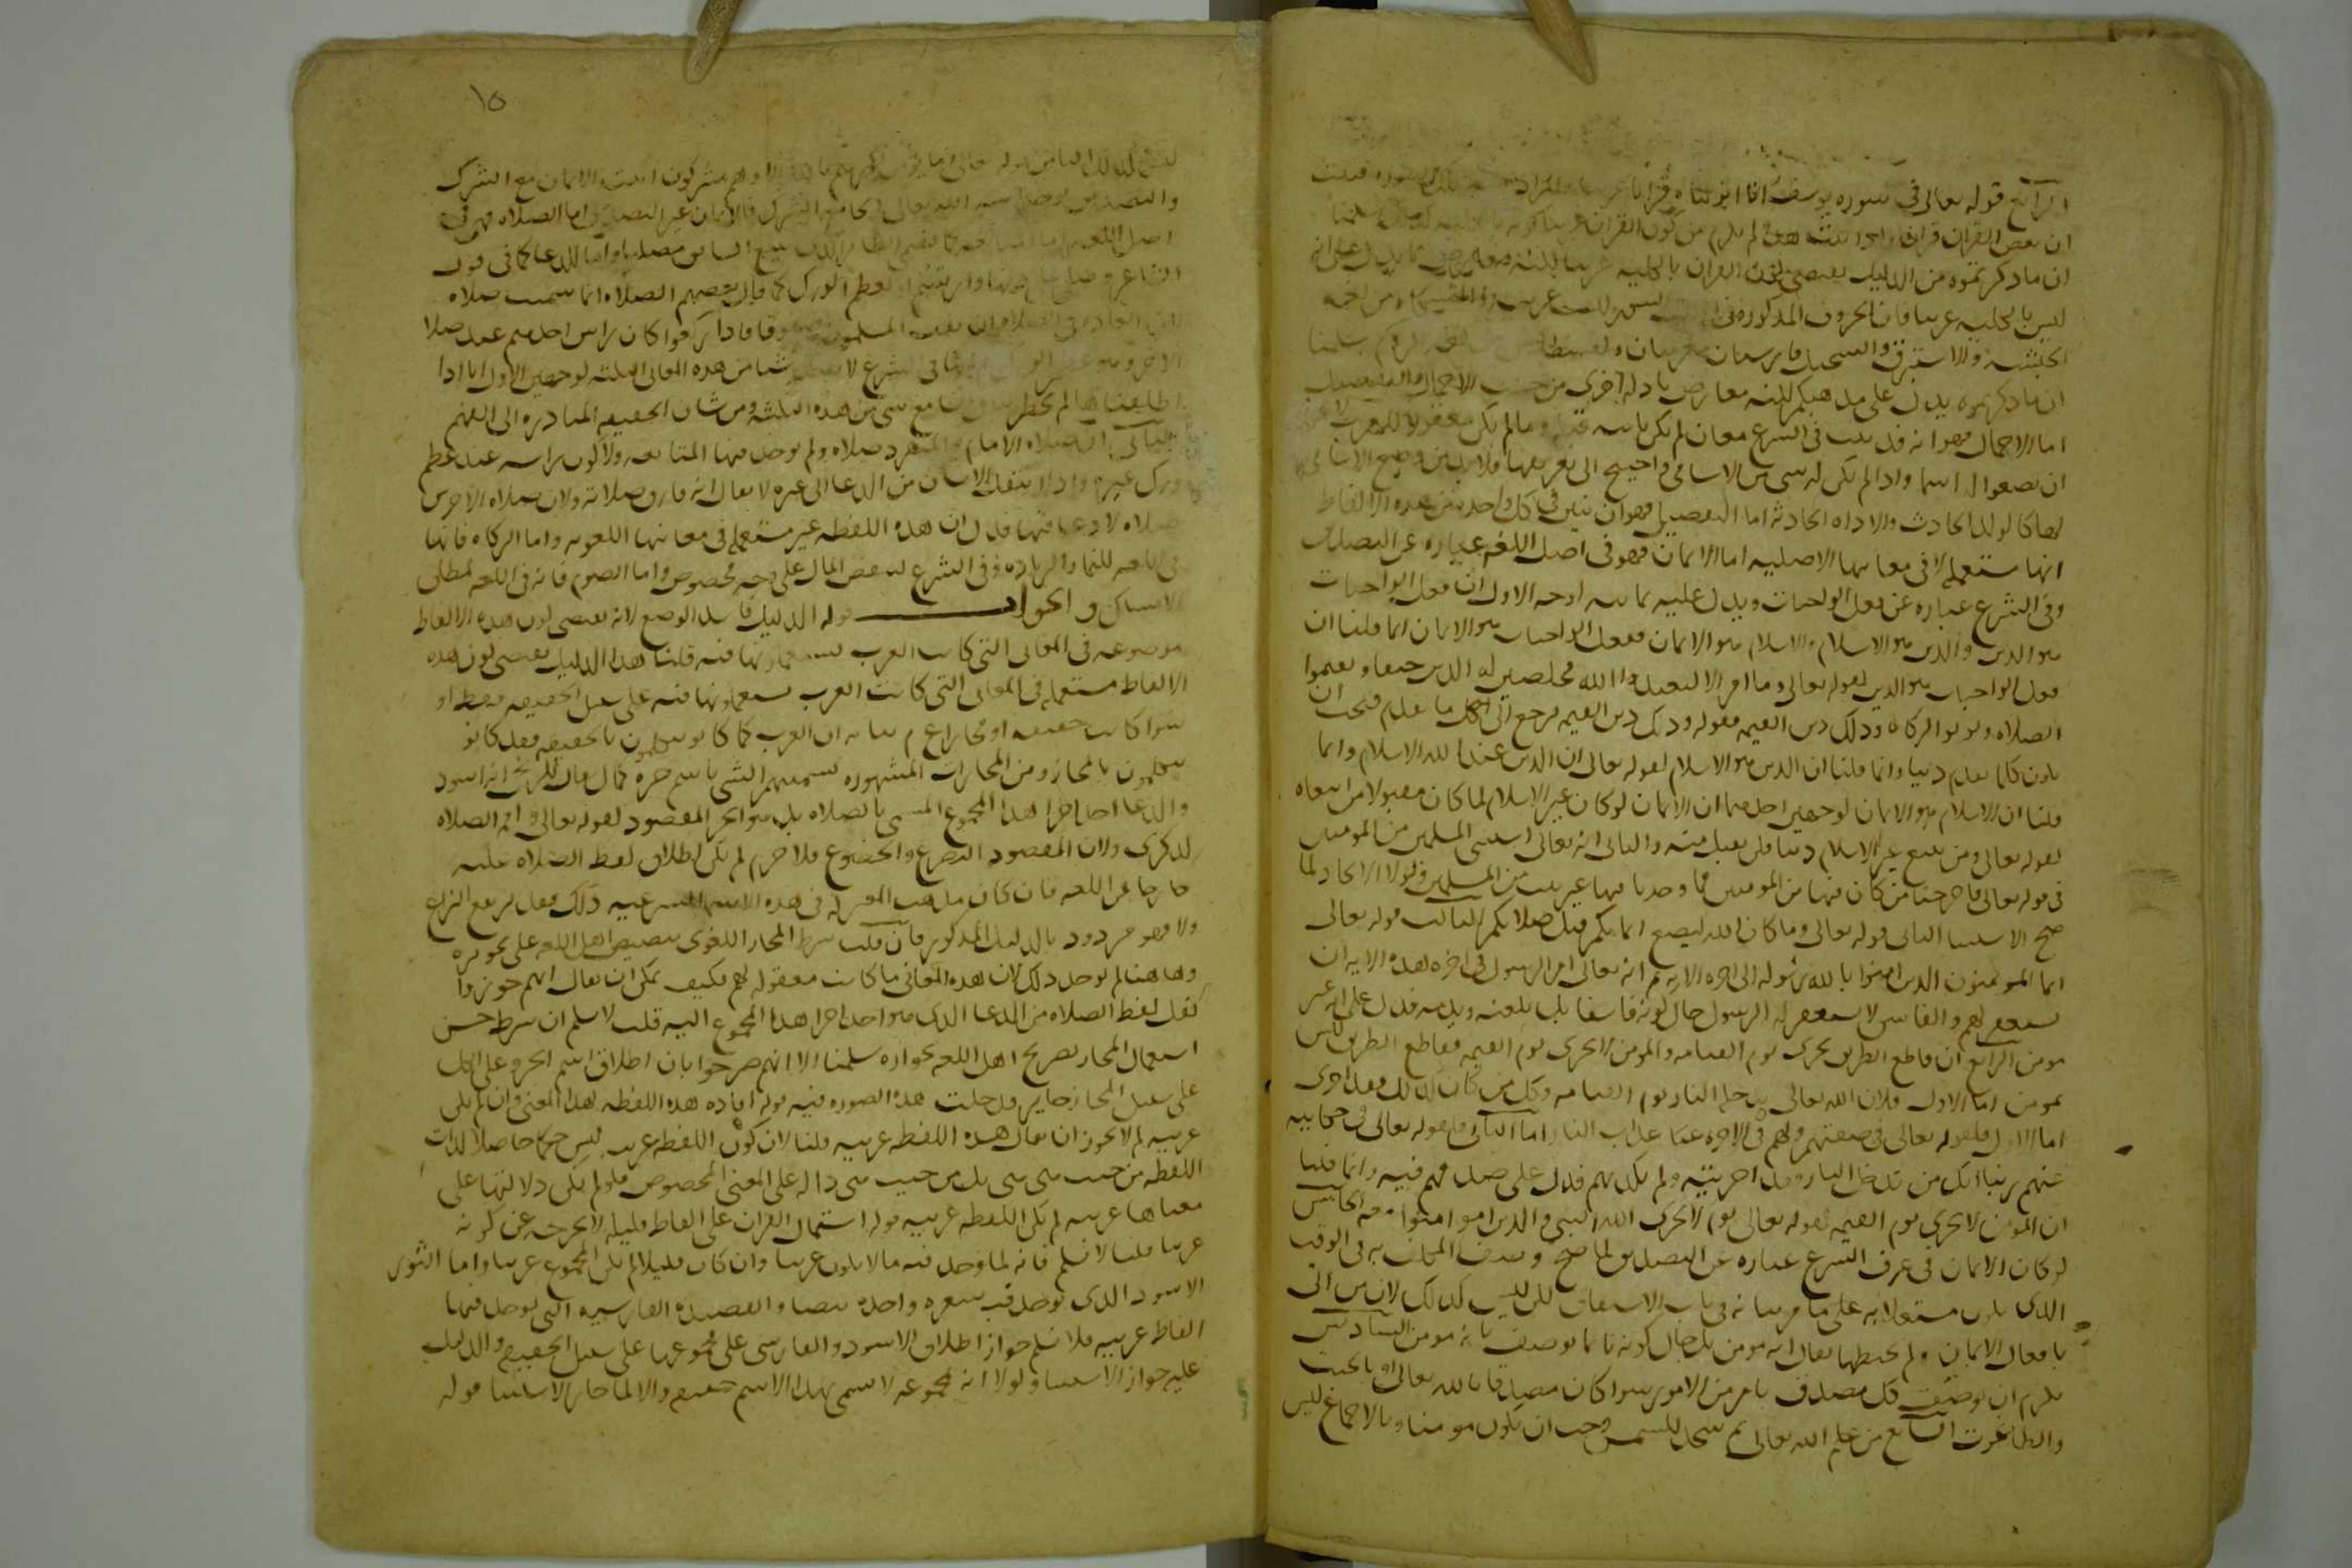 الرابع قوله تعالى في سوره يوسف انا انزلناه قرانا عربيا
ان بعض القران قران هذا لم يلزم من كون القران عربيا كونه بالكليه كذلك سلمنا
ان ما ذكرتموه من الدليل يقتضي كون القران بالكليه عربيا لكنه معارض بما يدل على انه
ليس بالكليه عربيا فان الحروف المذكوره في ليس عربيه والمشكاه من لغه
الحبشه والاستبرق والسجيل فارسيان معربان والقسطاس من لغه الروم سلمنا
ان ما ذكرتموه يدل على مذهبكم لكنه معارض بادله اخرى من حيث الاجمال والتفصيل
اما الاجمال فهو انه قد ثبت في الشرع معان لم تكن ثابته قبله وما لم يكن معقولا للعرب لا يجوز
ان يضعوا له اسما واذا لم يكن له شي من الاسامي واحتيج الى تعريفها فلا بد من وضع الاسامي
لها كالولد الحادث والاداه الحادثه اما التفصيل فهو ان نبين في كل واحد من هذه الالفاظ
انها مستعمله لا في معانيها الاصليه اما الايمان فهو في اصل اللغه عباره عن التصديق
وفي الشرع عباره عن فعل الواجبات ويدل عليه ثمانيه اوجه الاول ان فعل الواجبات
هو الدين والدين هو الاسلام والاسلام هو الايمان ففعل الواجبات هو الايمان انما قلنا ان
فعل الواجبات هو الدين لقوله تعالى وما امروا الا ليعبدوا الله مخلصين له الدين حنفا ويقيموا
الصلاه ويوتوا الزكاه وذلك دين القيمه فقوله وذلك دين القيمه يرجع الى كل ما تقدم فيجب ان
يكون كل ما تقدم دينا وانما قلنا ان الدين هو الاسلام لقوله تعالى ان الدين عند الله الاسلام وانما
قلنا ان الاسلام هو الايمان لوجهين احدهما ان الايمان لو كان غير الاسلام لما كان مقبولا من ابتغاه
لقوله تعالى ومن يبتغ غير الاسلام دينا فلن يقبل منه والثاني انه تعالى استثنى المسلمين من المومنين
في قوله تعالى فاخرجنا من كان فيها من المومنين فما وجدنا فيها غير بيت من المسلمين ولولا الاتحاد لما
صح الاستثنا الثاني قوله تعالى وما كان الله ليضيع ايمانكم قيل صلاتكم الثالث قوله تعالى
انما المومنون الذين امنوا بالله ورسوله الى اخره الايه ثم انه تعالى امر الرسول في اخر هذه الايه ان
يستغفر لهم والفاسق لا يستغفر له الرسول حال كونه فاسقا بل يلعنه ويذمه فدل على انه غير
مومن الرابع ان قاطع الطريق يخزى يوم القيامه والمومن لا يخزى يوم القيمه فقاطع الطريق ليس
بمومن اما الاول فلان الله تعالى يدخله النار يوم القيامه وكل من كان كذلك فقد اخزى
اما الاول فلقوله تعالى في صفتهم ولهم في الاخره عذاب النار اما الثاني فلقوله تعالى في حكايته
عنهم ربنا انك من تدخل النار فقد اخزيته ولم يكذبهم فدل على صدقهم فيه وانما قلنا
ان المومن لا يخزى يوم القيمه لقوله تعالى يوم لا يخزى الله النبي والذين امنوا معه الخامس
لو كان الايمان في عرف الشرع عباره عن التصديق لما صح وصف المكلف به في الوقت
الذي يكون مشتغلا به على ما مر بيانه في باب الاشتقاق لكن ليس كذلك لان من اتى
بافعال الايمان ولم يحبطها يقال انه مومن بل حال كونه نائما يوصف بانه مومن السادس
يلزم ان يوصف كل مصدق بامر من الامور سوا كان مصدقا بالله تعالى او بالجبت
والطاغوت السابع من علم الله تعالى ثم سجد للشمس وجب ان يكون مومنا وبالاجماع ليس
١٥
كذلك الثامن قوله تعالى وما يومن اكثرهم بالله الا وهم مشركون اثبت الايمان مع الشرك
والتصديق بوحدانيه الله تعالى لا يجامع الشرك فالايمان غير التصديق اما الصلاه فهي في
اصل اللغه اما للمتابعه كما يسمى الطائر الذي يتبع السابق مصليا واما للدعا كما في قول
الشاعر وصلى على دنها وارتسم او لعظم الورك كما قال بعضهم الصلاه انما سميت صلاه
لان العاده في الصلاه ان يقف المسلمون صفوفا فاذا ركعوا كان راس احدهم عند صلا
الاخر وهو عظم الورك ثم انها في الشرع لا تفيد شيا من هذه المعاني الثلثه لوجهين الاول انا اذا
اطلقناها لم يخطر ببالنا مع شي من هذه الثلثه ومن شان الحقيقه المبادره الى الفهم
الثاني ان صلاه الامام والمنفرد صلاه ولم يوجد فيها المتابعه ولا كون راسه عند عظم
ورك غيره واذا انتقل الانسان من الدعا الى غيره لا يقال انه فارق صلاته ولان صلاه الاخرس
صلاه لا دعا فيها فدل ان هذه اللفظه غير مستعمله في معانيها اللغويه واما الزكاه فانها
في اللغه للنما والزياده وفي الشرع لبعض المال على وجه مخصوص واما الصوم فانه في اللغه لمطلق
الامساك والجواب قوله الدليل فاسد الوضع لانه يقتضي كون هذه الالفاظ
موضوعه في المعاني التي كانت العرب يستعملونها فيه قلنا هذا الدليل يقتضي كون هذه
الالفاظ مستعمله في المعاني التي كانت العرب يستعملونها فيه على سبيل الحقيقه فقط او
سوا كانت حقيقه او مجازا ع م بيانه ان العرب كما كانو يتكلمون بالحقيقه فقد كانو
يتكلمون بالمجاز ومن المجازات المشهوره تسميتهم الشي باسم جزه كما يقال للزنجي انه اسود
والدعا احد اجزا هذا المجموع المسمى بالصلاه بل هو الجز المقصود لقوله تعالى واقم الصلاه
لذكري ولان المقصود التضرع والخضوع فلا جرم لم يكن اطلاق لفظ الصلاه عليه
خارجا عن اللغه فان كان مذهب المعتزله في هذه الاسما الشرعيه ذلك فقد ارتفع النزاع
والا فهو مردود بالدليل المذكور فان قلت شرط المجاز اللغوي تنصيص اهل اللغه على تجويزه
وهاهنا لم يوجد ذلك لان هذه المعاني ما كانت معقوله لهم فكيف يمكن ان يقال انهم جوزوا
نقل لفظ الصلاه من الدعا الذي هو احد اجزا هذا المجموع اليه قلت لا نسلم ان شرط حسن
استعمال المجاز تصريح اهل اللغه بجوازه سلمنا الا انهم صرحوا بان اطلاق اسم الجزو على الكل
على سبيل المجاز جايز فدخلت هذه الصوره فيه قوله افاده هذه اللفظه لهذا المعنى وان لم يكن
عربيه لم لا يجوز ان يقال هذه اللفظه عربيه قلنا لان كون اللفظه عربيه ليس حكما حاصلا لذات
اللفظه من حيث هي هي بل من حيث هي داله على المعنى المخصوص فلو لم يكن دلالتها على
معناها عربيه لم تكن اللفظه عربيه قوله اشتمال القران على الفاظ قليله لا يخرجه عن كونه
عربيا قلنا لا نسلم فانه لما وجد فيه ما لا يكون عربيا وان كان قليلا لم يكن المجموع عربيا واما الثور
الاسود الذي توجد فيه شعره واحده بيضا والقصيده الفارسيه التي يوجد فيها
الفاظ عربيه فلا نسلم جواز اطلاق الاسود والفارسي على مجموعها على سبيل الحقيقه والدليل
عليه جواز الاستثنا ولولا انه مجموعه لا يسمى بهذا الاسم حقيقه والا لما جاز الاستثنا قوله